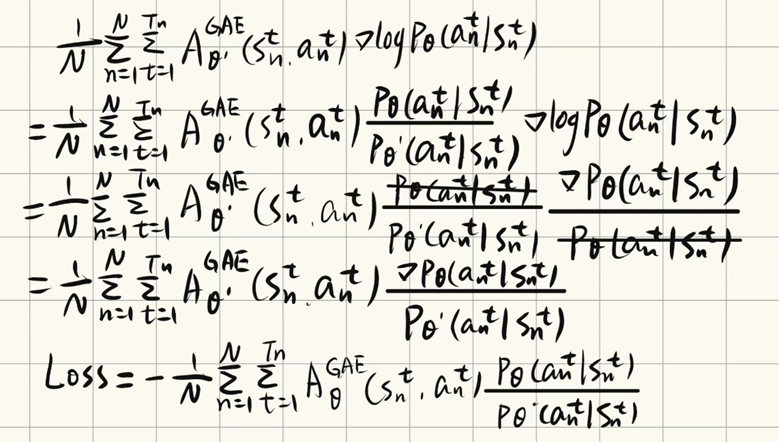 \frac{1}{N} \sum_{n=1}^{N} \sum_{t=1}^{T_n} A_{\theta'}^{GAE}(s_n^t, a_n^t) \nabla \log P_\theta(a_n^t | s_n^t)
= \frac{1}{N} \sum_{n=1}^{N} \sum_{t=1}^{T_n} A_{\theta'}^{GAE}(s_n^t, a_n^t) \frac{P_\theta(a_n^t | s_n^t)}{P_{\theta'}(a_n^t | s_n^t)} \nabla \log P_\theta(a_n^t | s_n^t)
= \frac{1}{N} \sum_{n=1}^{N} \sum_{t=1}^{T_n} A_{\theta'}^{GAE}(s_n^t, a_n^t) \frac{\cancel{P_\theta(a_n^t | s_n^t)}}{P_{\theta'}(a_n^t | s_n^t)} \frac{\nabla P_\theta(a_n^t | s_n^t)}{\cancel{P_\theta(a_n^t | s_n^t)}}
= \frac{1}{N} \sum_{n=1}^{N} \sum_{t=1}^{T_n} A_{\theta'}^{GAE}(s_n^t, a_n^t) \frac{\nabla P_\theta(a_n^t | s_n^t)}{P_{\theta'}(a_n^t | s_n^t)}
Loss = -\frac{1}{N} \sum_{n=1}^{N} \sum_{t=1}^{T_n} A_{\theta}^{GAE}(s_n^t, a_n^t) \frac{P_\theta(a_n^t | s_n^t)}{P_{\theta'}(a_n^t | s_n^t)}